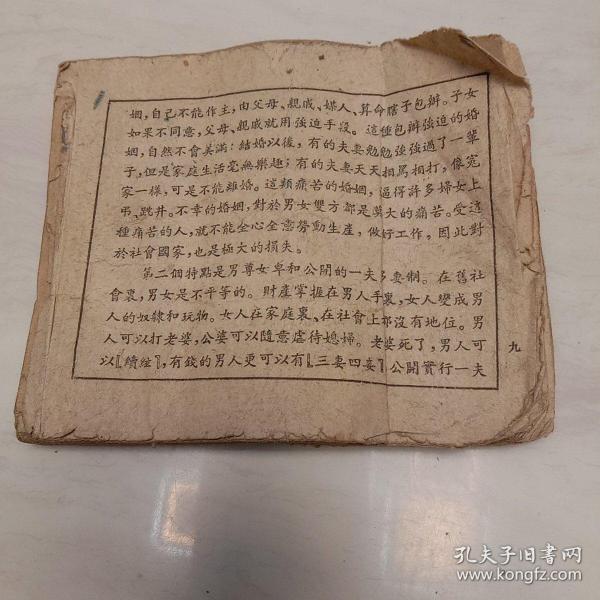 姻，自己不能作主，由父母、親戚、媒人、算命瞎子包辦。子女
如果不同意，父母、親戚就用強迫手段。這種包辦強迫的婚
姻，自然不會美滿：結婚以後，有的夫妻勉勉強強過了一輩
子，但是家庭生活毫無樂趣；有的夫妻天天相罵相打，像冤
家一樣，可是不能離婚。這類痛苦的婚姻，逼得許多婦女上
弔、跳井。不幸的婚姻，對於男女雙方都是莫大的痛苦。受這
種痛苦的人，就不能全心全意勞動生產，做好工作。因此對
於社會國家，也是極大的損失。
第二個特點是男尊女卑和公開的一夫多妻制。在舊社
會裏，男女是不平等的。財產掌握在男人手裏，女人變成男
人的奴隸和玩物。女人在家庭裏、在社會上都沒有地位。男
人可以打老婆，公婆可以隨意虐待媳婦。老婆死了，男人可
以『續絃』，有錢的男人更可以有『三妻四妾』公開實行一夫
九
孔夫子旧书网
www.kongfz.com